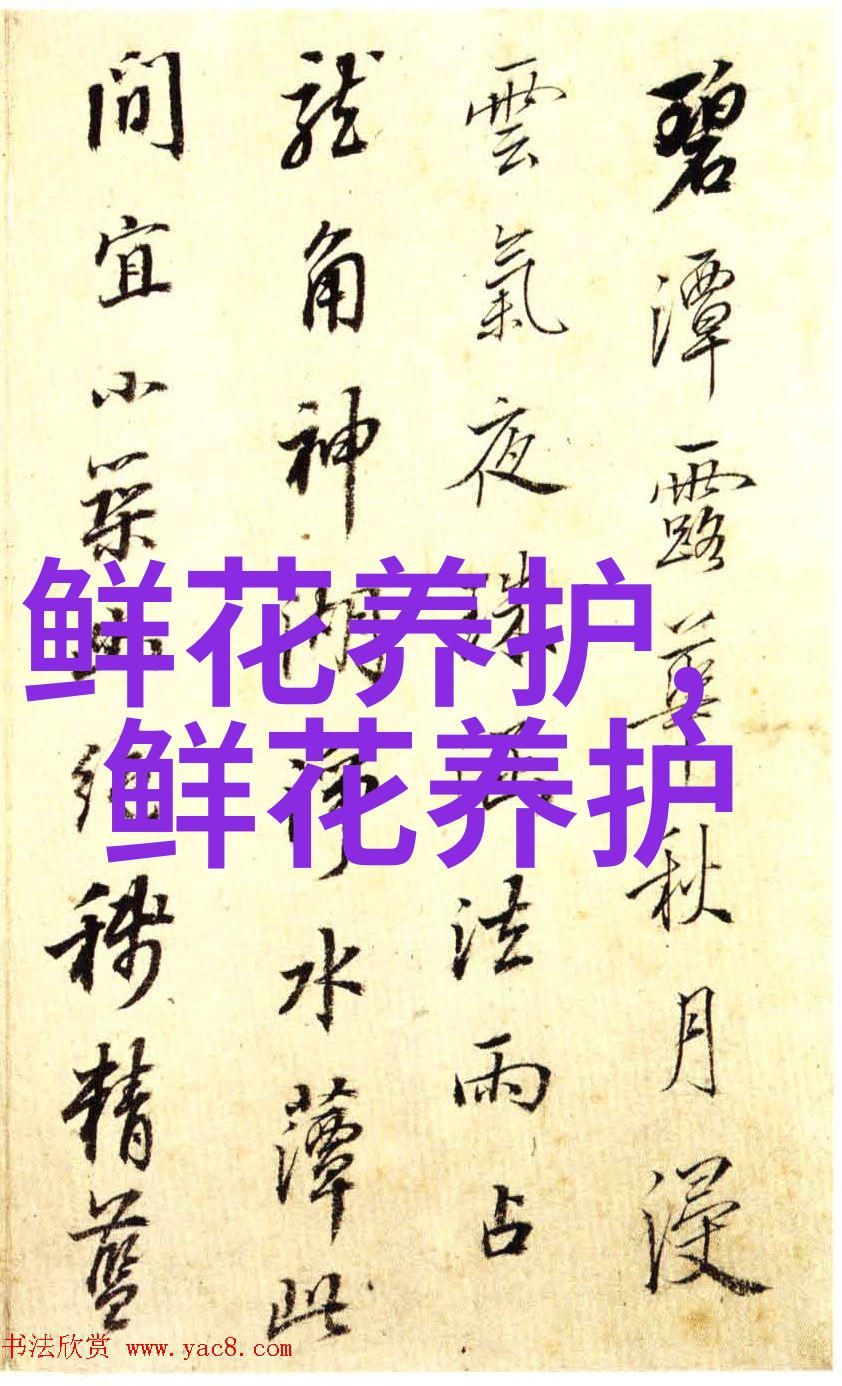 碧潭露華秋月浸
雲氣夜珠法雨占
龍角神湖水薄此
間宜小築精藍
鲜花养护,
鲜花养护
书法欣赏 www.yac8.com